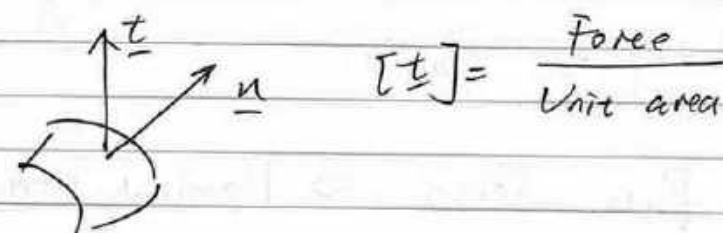 t
n
[t] = Force / Unit area